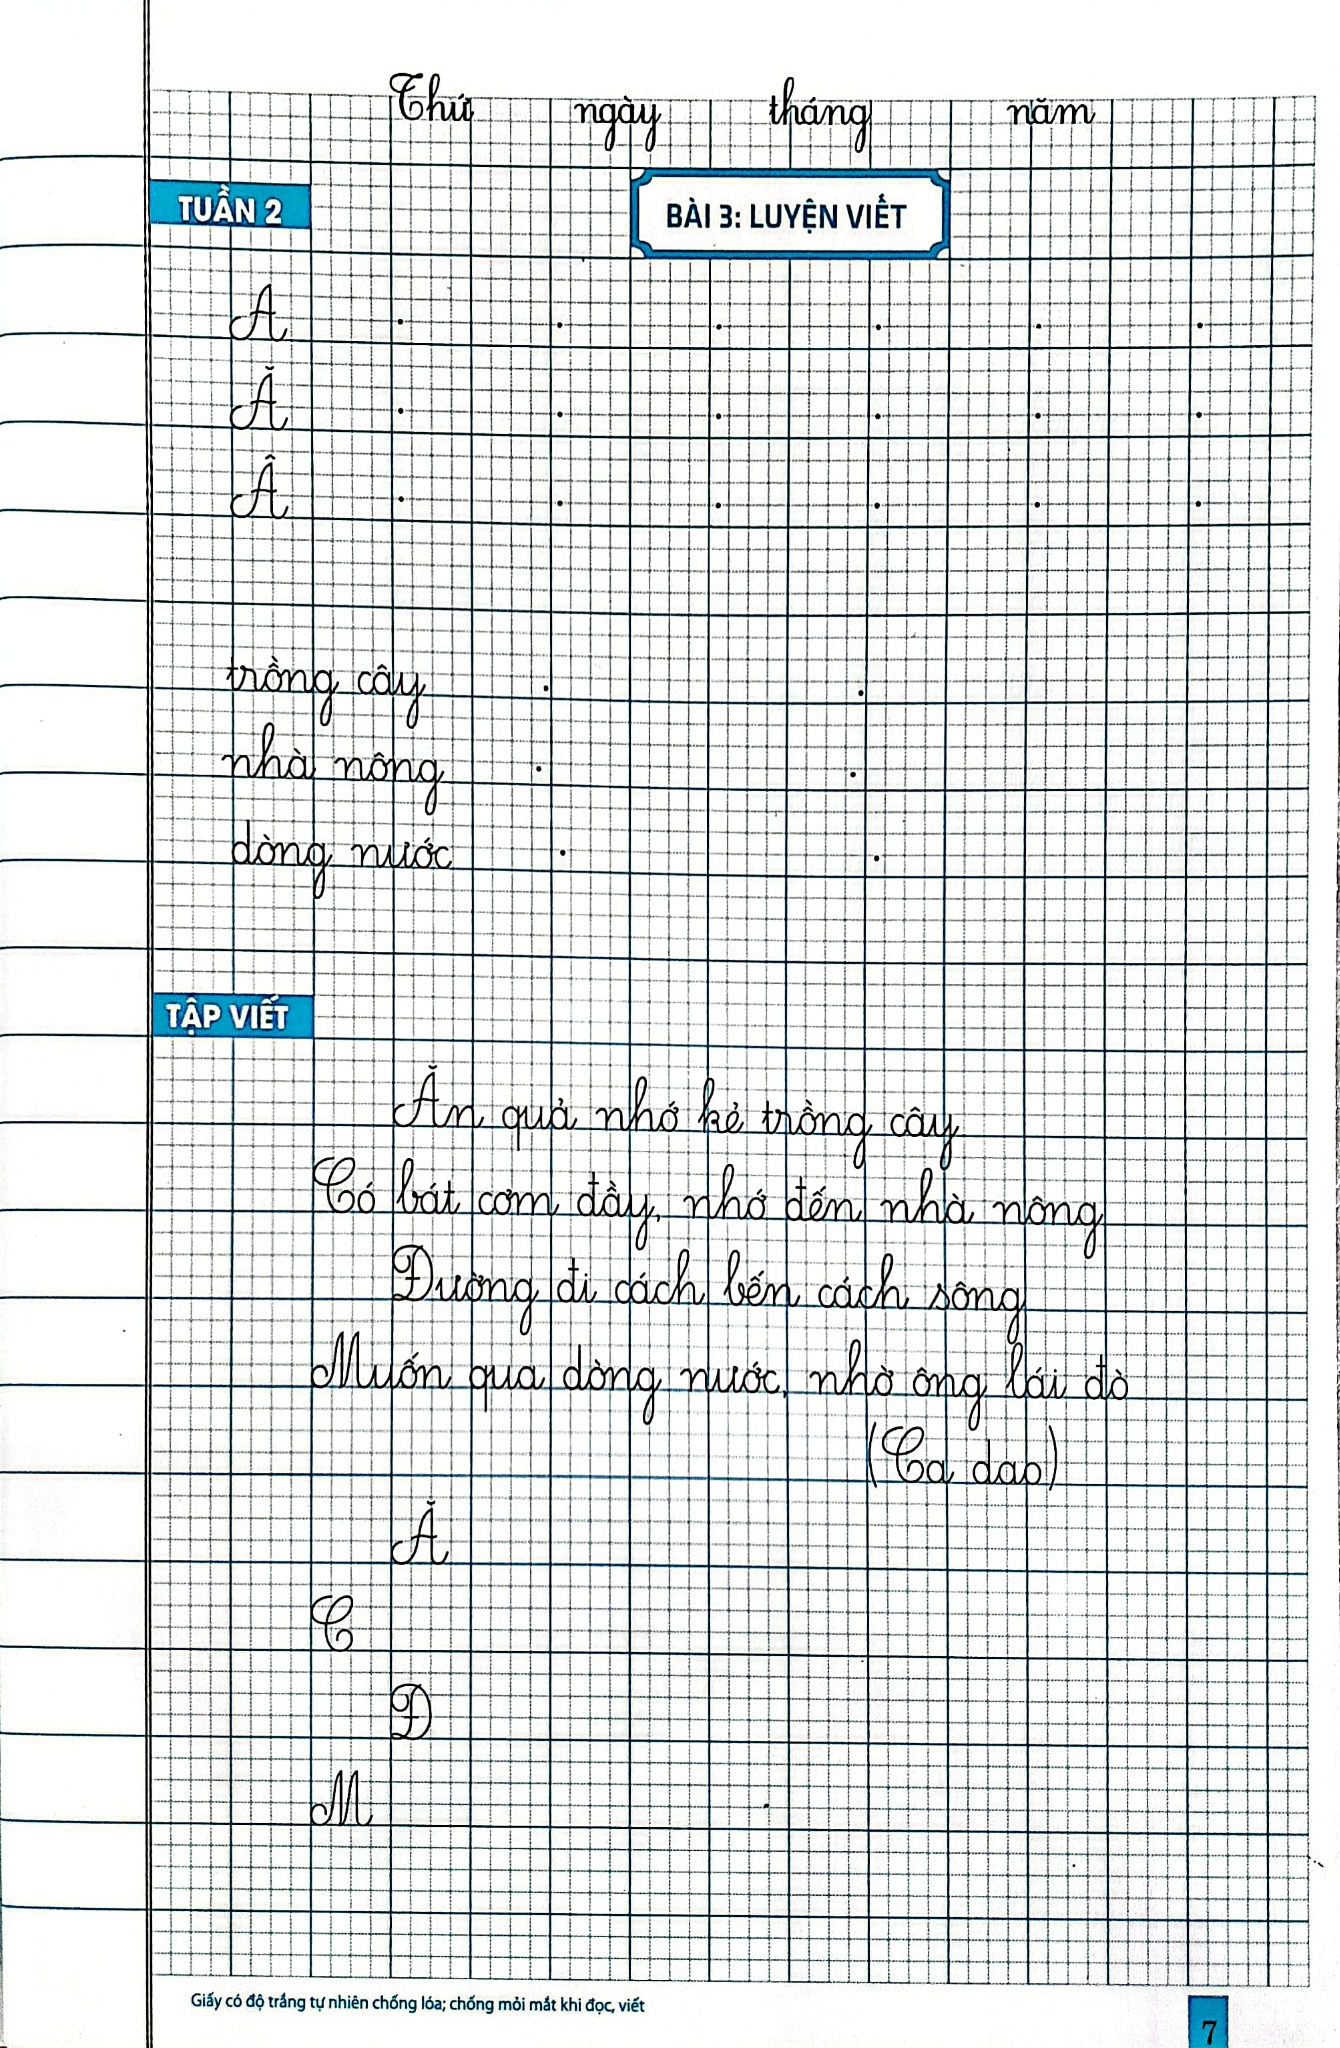 Thứ ngày tháng năm
TUẦN 2
BÀI 3: LUYỆN VIẾT
A . . . . . .
Ă . . . . . .
Â . . . . . .
trồng cây . .
nhà nông . .
dòng nước . .
TẬP VIẾT
Ăn quả nhớ kẻ trồng cây
Có bát cơm đầy, nhớ đến nhà nông
Đường đi cách bến cách sông
Muốn qua dòng nước, nhờ ông lái đò
(Ca dao)
Ă
C
Đ
M
Giấy có độ trắng tự nhiên chống lóa; chống mỏi mắt khi đọc, viết
7